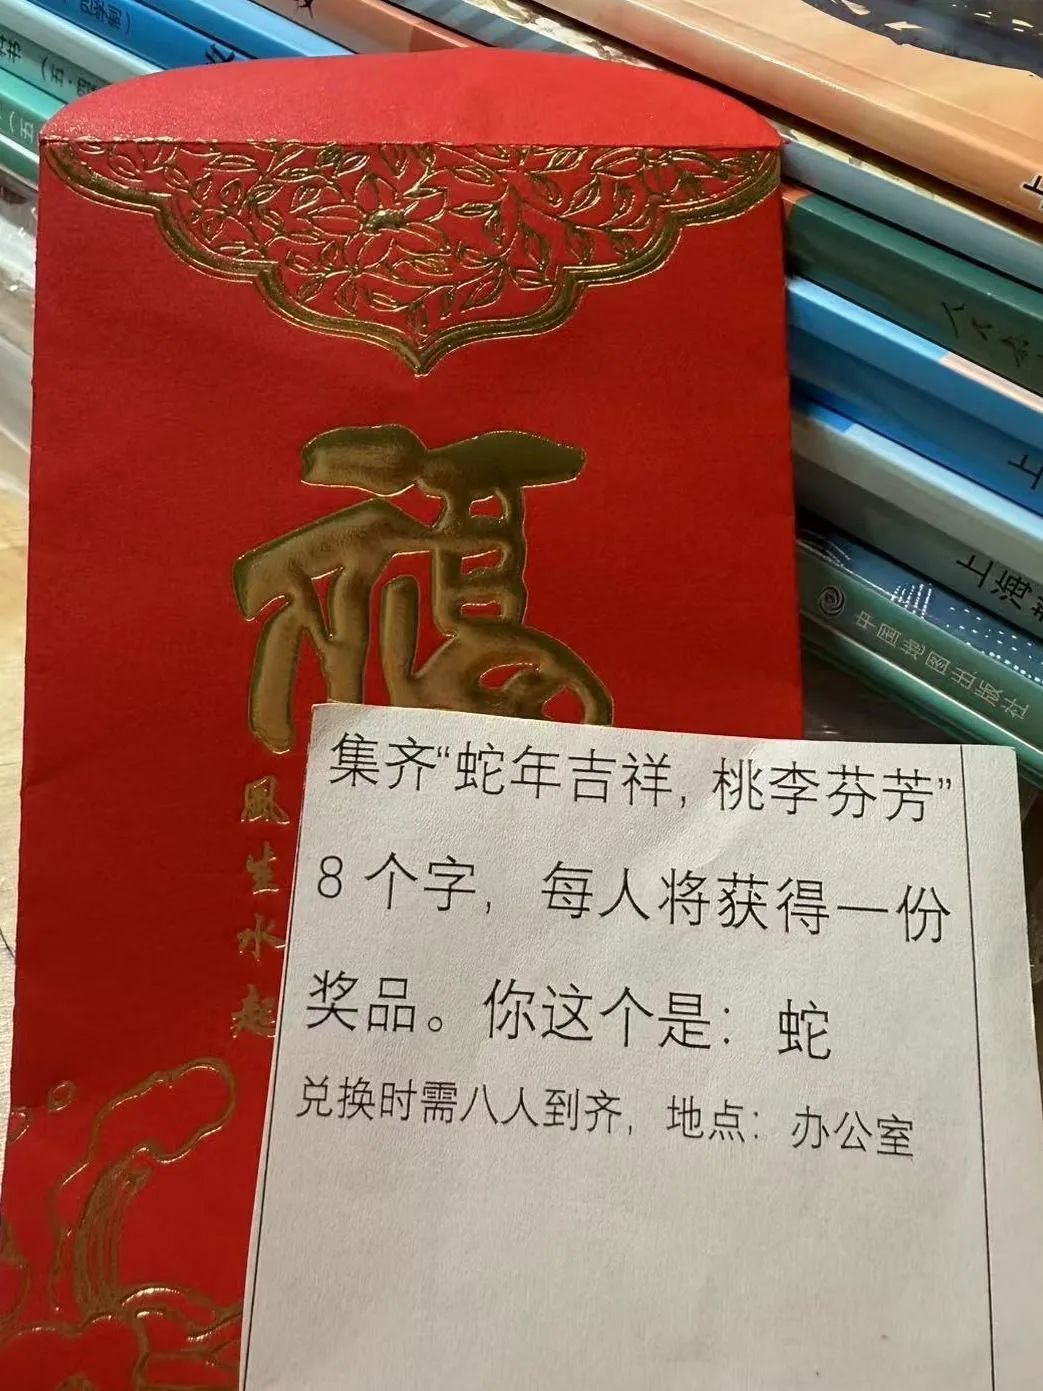 福
風生水起
集齐“蛇年吉祥, 桃李芬芳”
8 个字, 每人将获得一份
奖品。你这个是: 蛇
兑换时需八人到齐, 地点: 办公室
中国地图出版社
上海